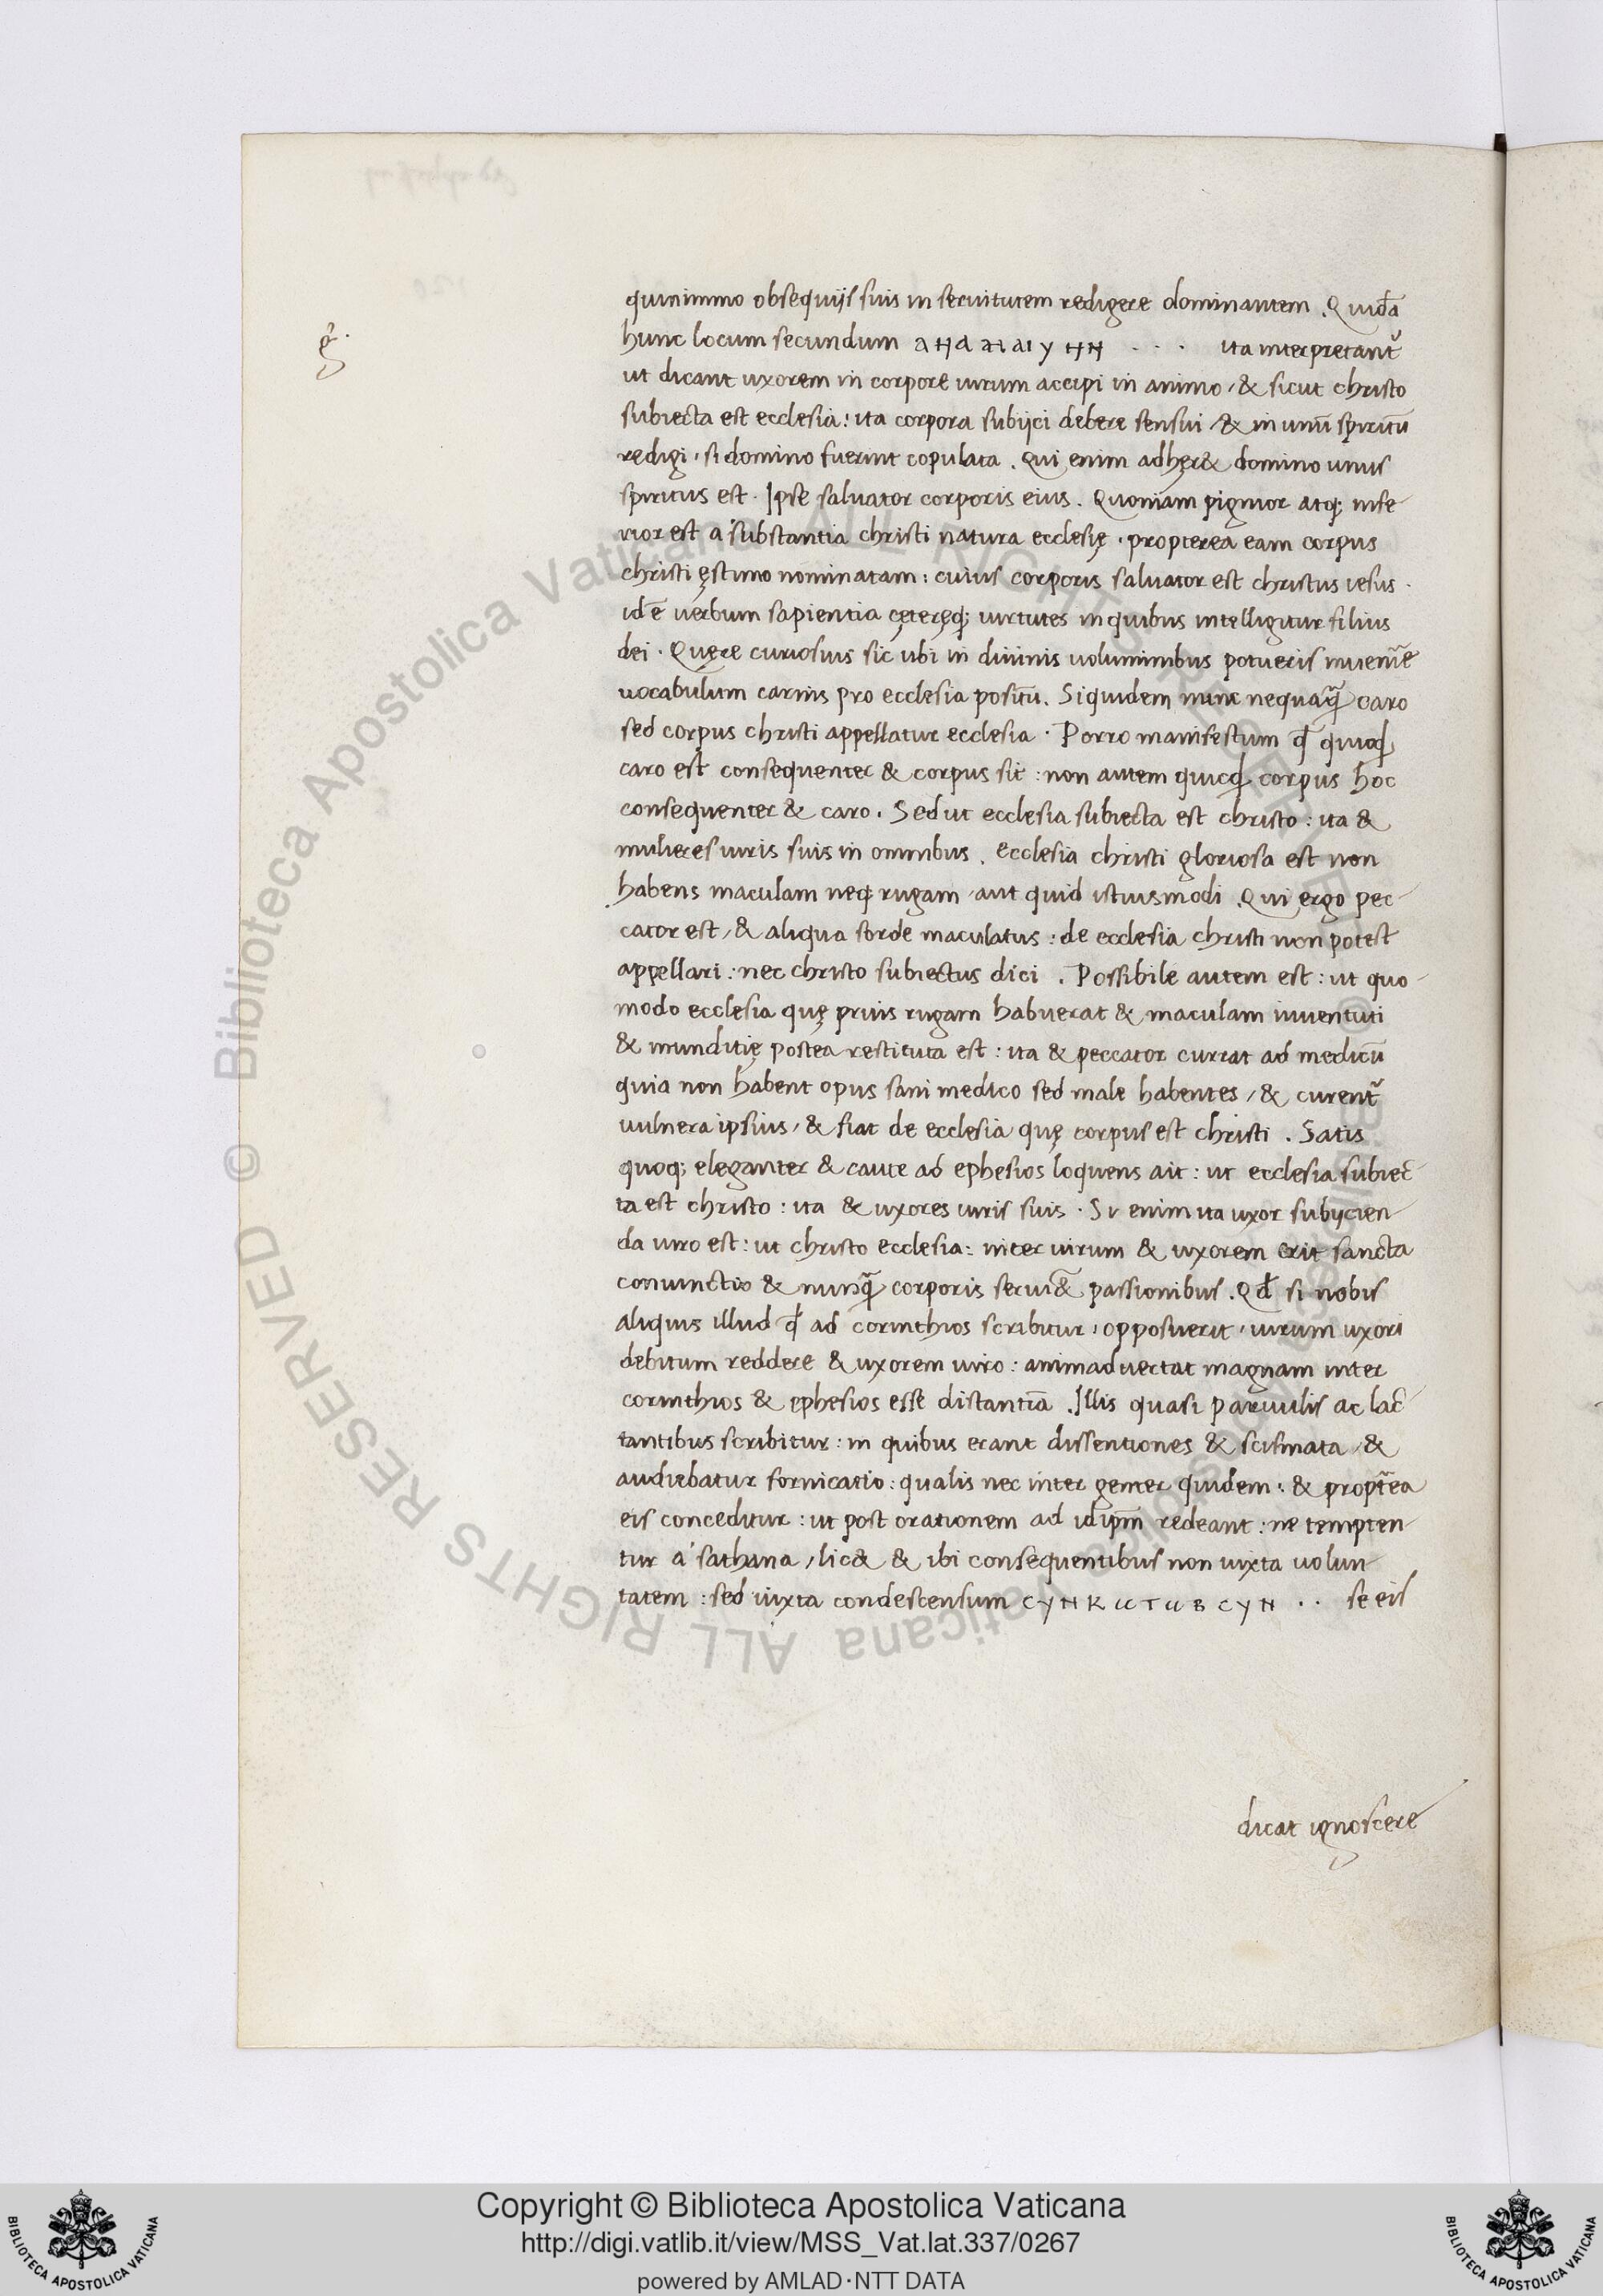 quinimmo obsequijs suis in seruitutem redigere dominantem . Quidā
gͬ.
hunc locum secundum ... ita interpretant᷑
ut dicant uxorem in corpore uirum accipi in animo / & sicut christo
subiecta est ecclesia : ita corpora subijci debere sensui / & in unū spiritū
redigi , si domino fuerint copulata . Qui enim adhęr& domino unus
spiritus est . Ipse saluator corporis eius . Quoniam pignior atq; infe-
rior est a' substantia christi natura ecclesię . propterea eam corpus
christi ęstimo nominatam : cuius corporis saluator est christus iesus .
id ē uerbum sapientia cęteręq; uirtutes in quibus intelligitur filius
dei . Quęre curiosius sic ubi in diuinis uoluminibus potueris inuenir̄e
uocabulum carnis pro ecclesia positū . Siquidem nunc nequaq̄ caro
sed corpus christi appellatur ecclesia . Porro manifestum qđ quicqđ
caro est consequenter & corpus sit : non autem quicqđ corpus hoc
consequenter & caro . Sed ut ecclesia subiecta est christo : ita &
mulieres uiris suis in omnibus . ecclesia christi gloriosa est non
habens maculam neq; rugam / aut quid istiusmodi . Qui ergo pec-
cator est / & aliqua sorde maculatus : de ecclesia christi non potest
appellari : nec christo subiectus dici . Possibile autem est : ut quo-
modo ecclesia quę prius rugam habuerat & maculam iuuentuti
& munditię postea restituta est : ita & peccator currat ad medicū
quia non habent opus sani medico sed male habentes / & curent᷑
uulnera ipsius / & fiat de ecclesia quę corpus est christi . Satis
quoq; eleganter & caute ad ephesios loquens ait : ut ecclesia subiec-
ta est christo : ita & uxores uiris suis . Si enim ita uxor subijcien-
da uiro est : ut christo ecclesia : inter uirum & uxorem erit sancta
coniunctio & nunq̄ corporis serui&̄ passionibus . Qđ si nobis
aliquis illud qđ ad corinthios scribitur , opposuerit , uirum uxori
debitum reddere & uxorem uiro : animaduertat magnam inter
corinthios & ephesios esse distantiā . Illis quasi paruulis ac lac-
tantibus scribitur : in quibus erant dissentiones & scismata / &
audiebatur fornicatio : qualis nec inter gentes quidem : & propt̄ea
eis conceditur : ut post orationem ad idipm̄ redeant : ne tempten-
tur a' sathana / lic& & ibi consequentibus non iuxta uolun-
tatem : sed iuxta condescensum CYNKUTUBCYN . . se eis
dicat ignoscere
© Biblioteca Apostolica Vaticana ALL RIGHTS RESERVED © Biblioteca Apostolica Vaticana ALL RIGHTS RESERVED
Copyright © Biblioteca Apostolica Vaticana
http://digi.vatlib.it/view/MSS_Vat.lat.337/0267
powered by AMLAD·NTT DATA
BIBLIOTECA APOSTOLICA VATICANA
BIBLIOTECA APOSTOLICA VATICANA